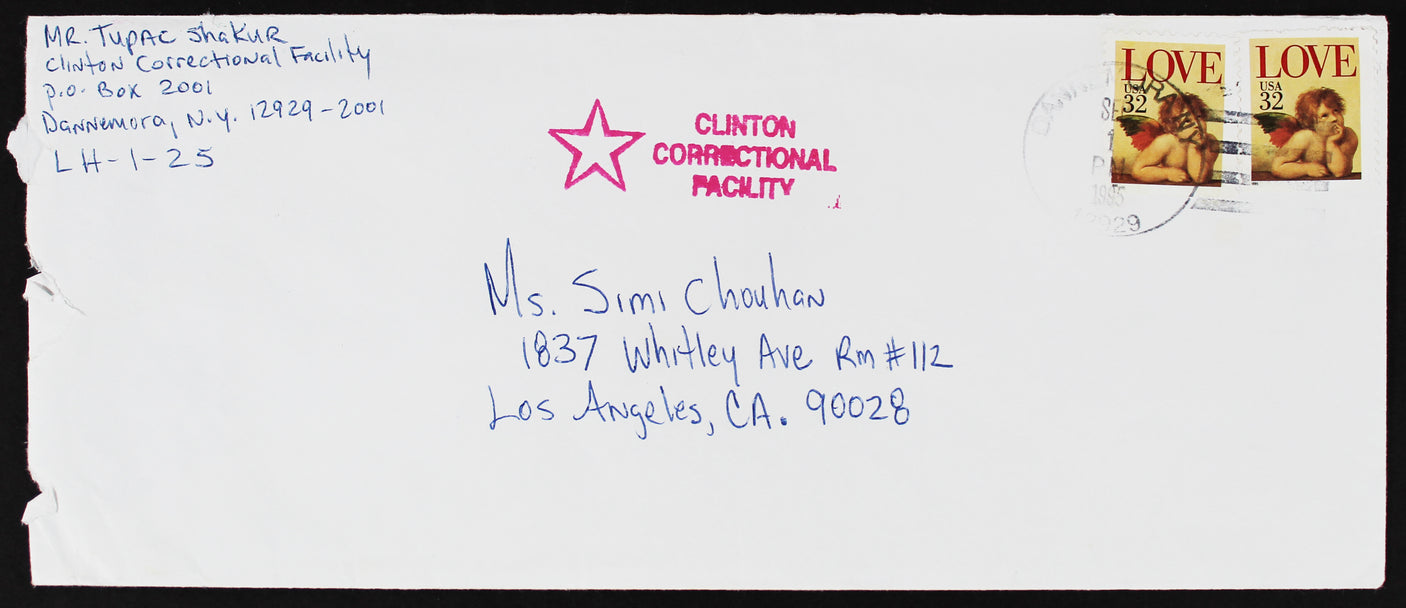 MR. Tupac Shakur
Clinton Correctional Facility
p.o. Box 2001
Dannemora, N.Y. 12929-2001
LH-1-25
CLINTON
CORRECTIONAL
FACILITY
LOVE
USA
32
LOVE
USA
32
PM
1995
12929
Ms. Simi Chouhan
1837 Whitley Ave Rm #112
Los Angeles, CA. 90028